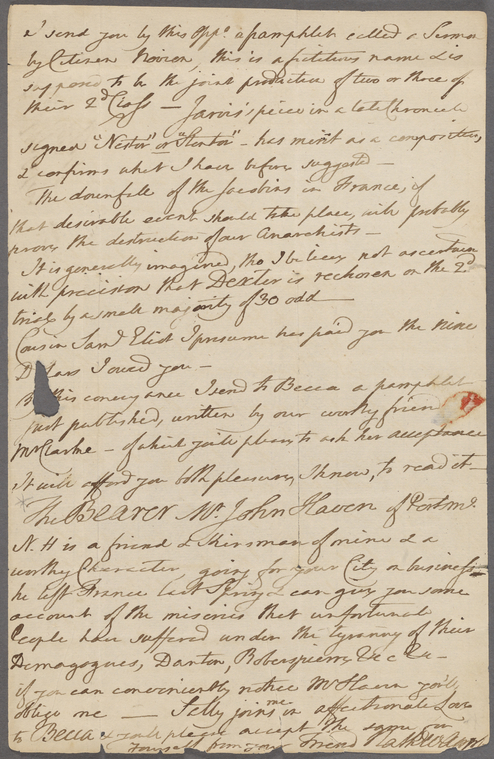 I send you by this Oppo. a pamphlet called a Sermon
by Citizen Novion, this is a fictitious name & is
supposed to be the joint production of two or three of
their 2d Class — Jarvis's piece in a late Chronicle
signed "Nestor" or "Stentor" - has merit as a composition,
& confirms what I have before suggested —
The downfall of the Jacobins in France, if
that desirable event should take place, will probably
prove the destruction of our Anarchists —
It is generally imagined, tho I believe not ascertain
with precision that Dexter is rechosen on the 2d
trial by a small majority of 30 odd —
Cousin Saml. Eliot I presume has paid you the nine
Dollars I owed you —
By this conveyance I send to Becca a pamphlet
just published, written by our worthy friend
Mr Clarke - of which you'll please to ask her acceptance
It will afford you both pleasure, I know, to read it —
The Bearer Mr. John Haven of Portsmo.
N. H is a friend & kinsman of mine & a
worthy Character, going for your City, on business
he left France last Spring & can give you some
account of the miseries that unfortunate
People have suffered under the tyranny of their
Demagogues, Danton, Roberspierre &c &c —
if you can conveniently notice Mr Haven you'll
oblige me — Sally joins me in affectionate Love
to Becca & you'll please accept the same for
Yourself from your Friend